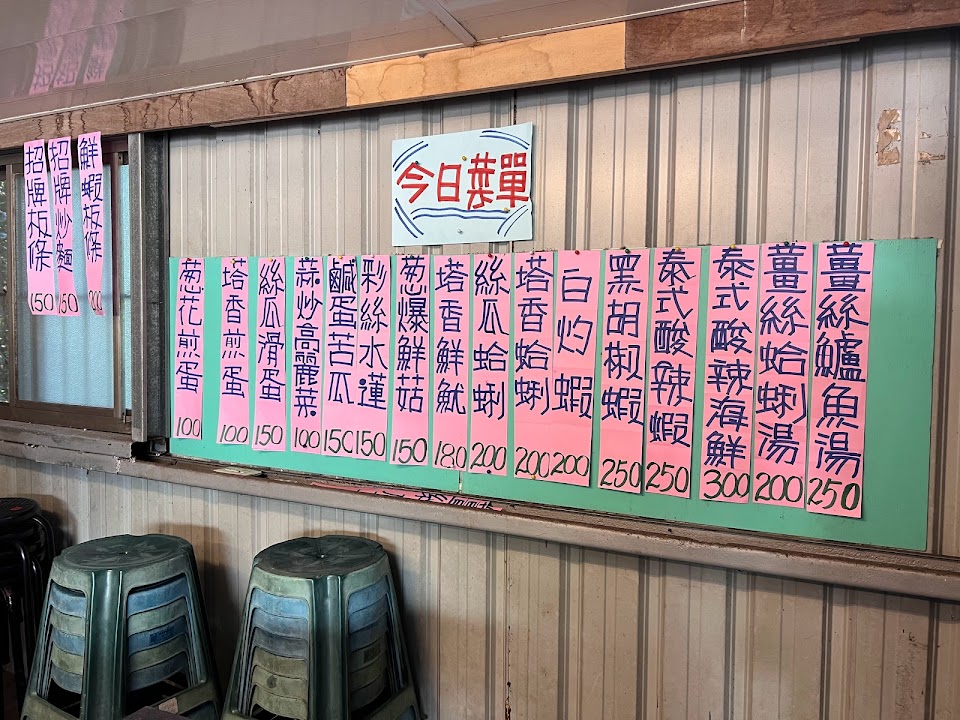 今日菜單
招牌板條 150
招牌炒麵 150
鮮蝦板條 200
葱花煎蛋 100
塔香煎蛋 100
絲瓜滑蛋 150
蒜炒高麗菜 100
鹹蛋苦瓜 150
彩絲水蓮 150
葱爆鮮菇 150
塔香鮮魷 180
絲瓜蛤蜊 200
塔香蛤蜊 200
白灼蝦 200
黑胡椒蝦 250
泰式酸辣蝦 250
泰式酸辣海鮮 300
薑絲蛤蜊湯 200
薑絲鱸魚湯 250